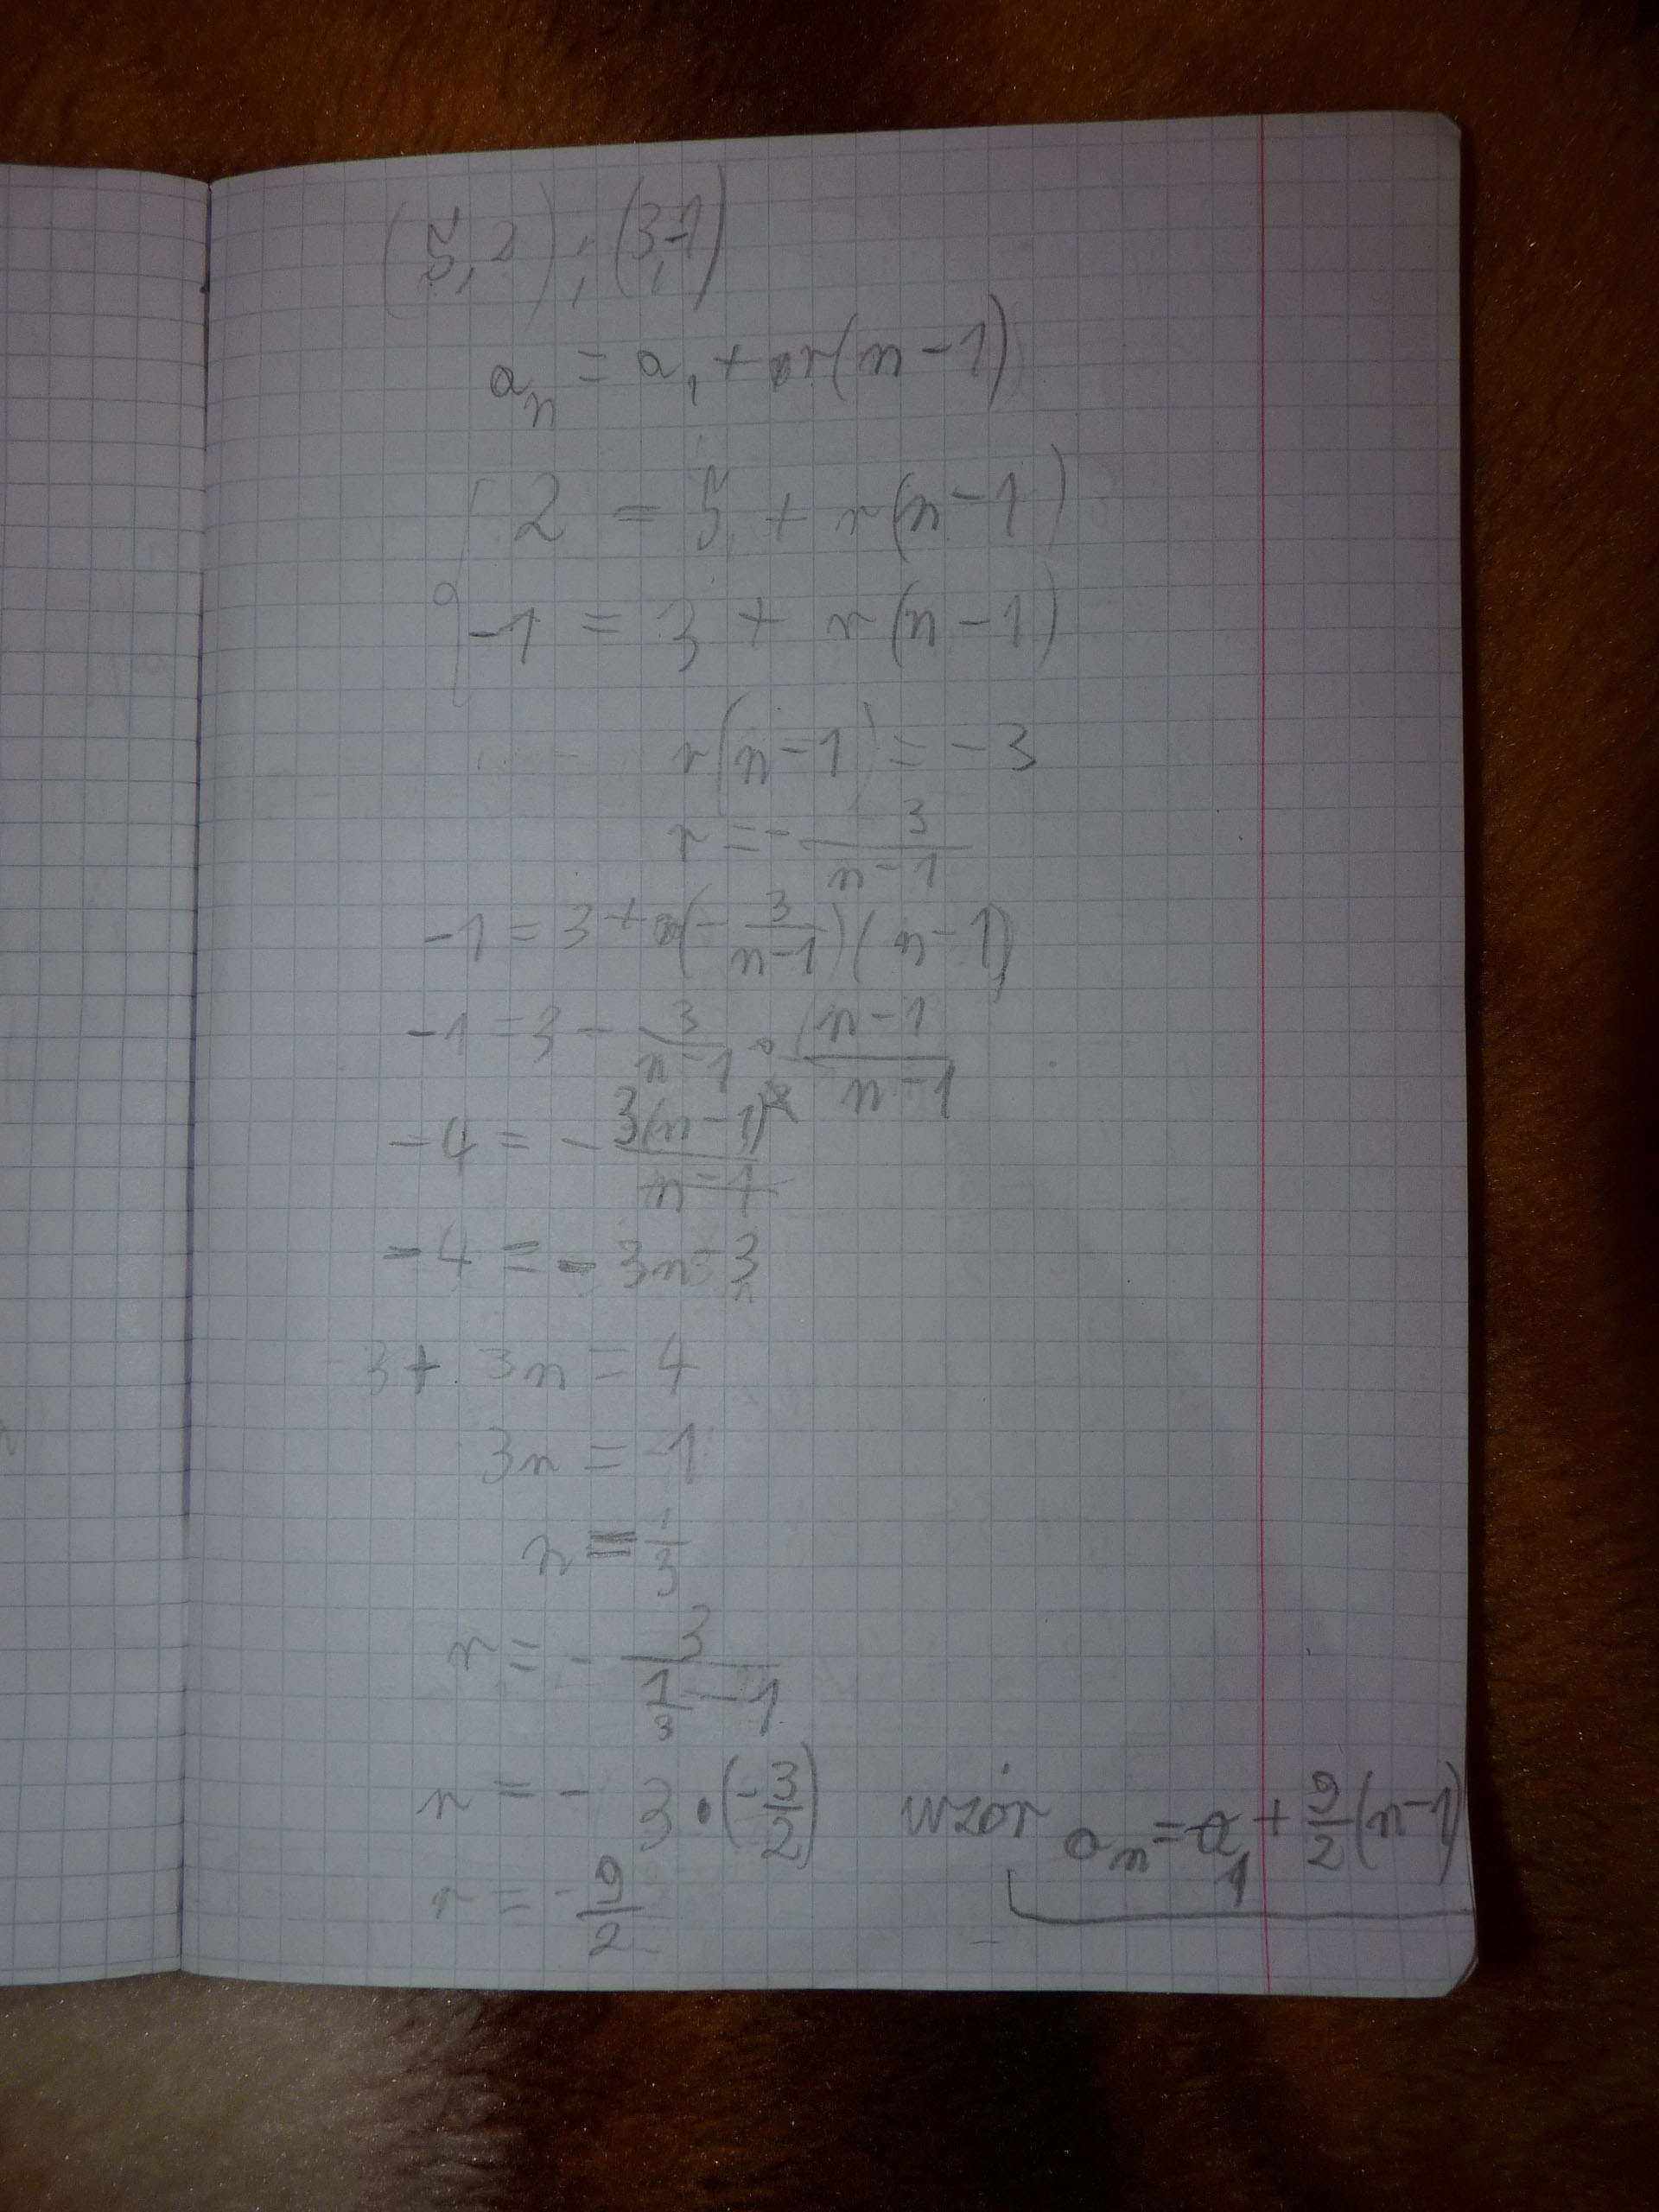 (5, 2) ; (3, -1)
aₙ = a₁ + r(n - 1)
2 = 5 + r(n - 1)
-1 = 3 + r(n - 1)
r(n - 1) = -3
r = - 3/(n - 1)
-1 = 3 + (- 3/(n-1))(n - 1)
-1 = 3 - 3/(n-1) · (n-1)/(n-1)
-4 = - 3(n-1)/(n-1)
-4 = - 3n - 3
3 + 3n = 4
3n = -1
n = 1/3
r = - 3/(1/3 - 1)
r = - 3 · (-3/2)
wzór aₙ = a₁ + 9/2 (n-1)
r = - 9/2